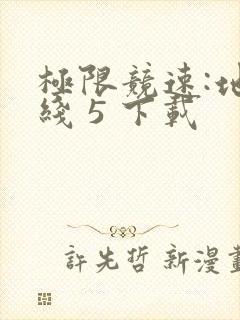 極限競速:地
綫 5 下載
許先哲 新漫畫